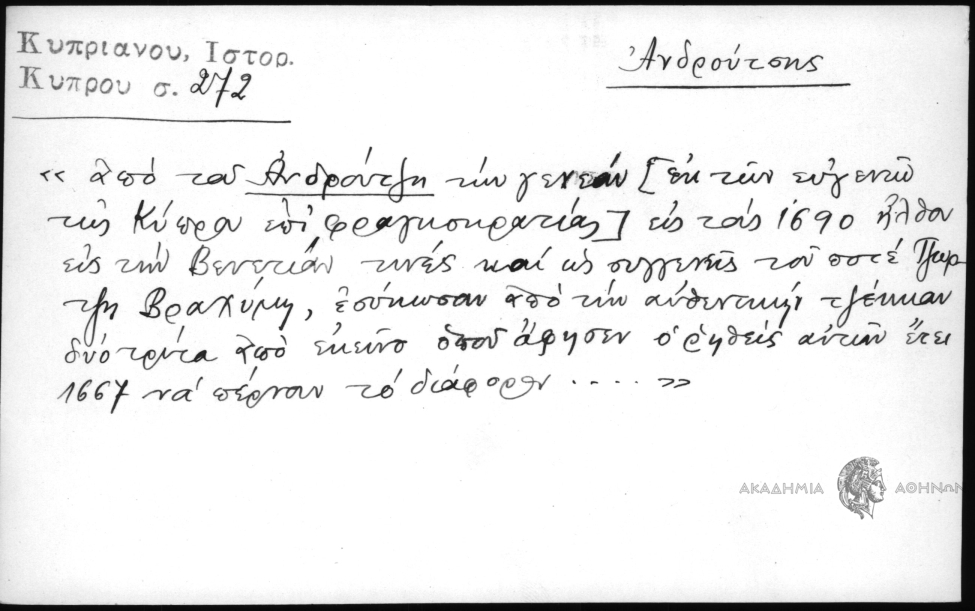 Κυπριανου, Ιστορ.
Κυπρου σ. 272
Ἀνδρούτσης
« ἀπό τοῦ Ἀνδρούτζη τήν γενεάν [ἐκ τῶν εὐγενῶ
τῆς Κύπρου ἐπί φραγκοκρατίας] εἰς τούς 1690 ἦλθον
εἰς τήν Βενετιάν τινές καί ὡς συγγενής τοῦ ποτέ Τζωρ-
τζη Βραχύμη, ἐσύκωσαν ἀπό τήν αὐθεντικήν τζέκκαν
δύο τρίτα ἀπό ἐκεῖνο ὁποῦ ἄφησεν ὁ ῥηθείς αὐτῶν ἔτει
1667 νά πέρνουν τό διάφορον ..... »
ΑΚΑΔΗΜΙΑ ΑΘΗΝΩΝ